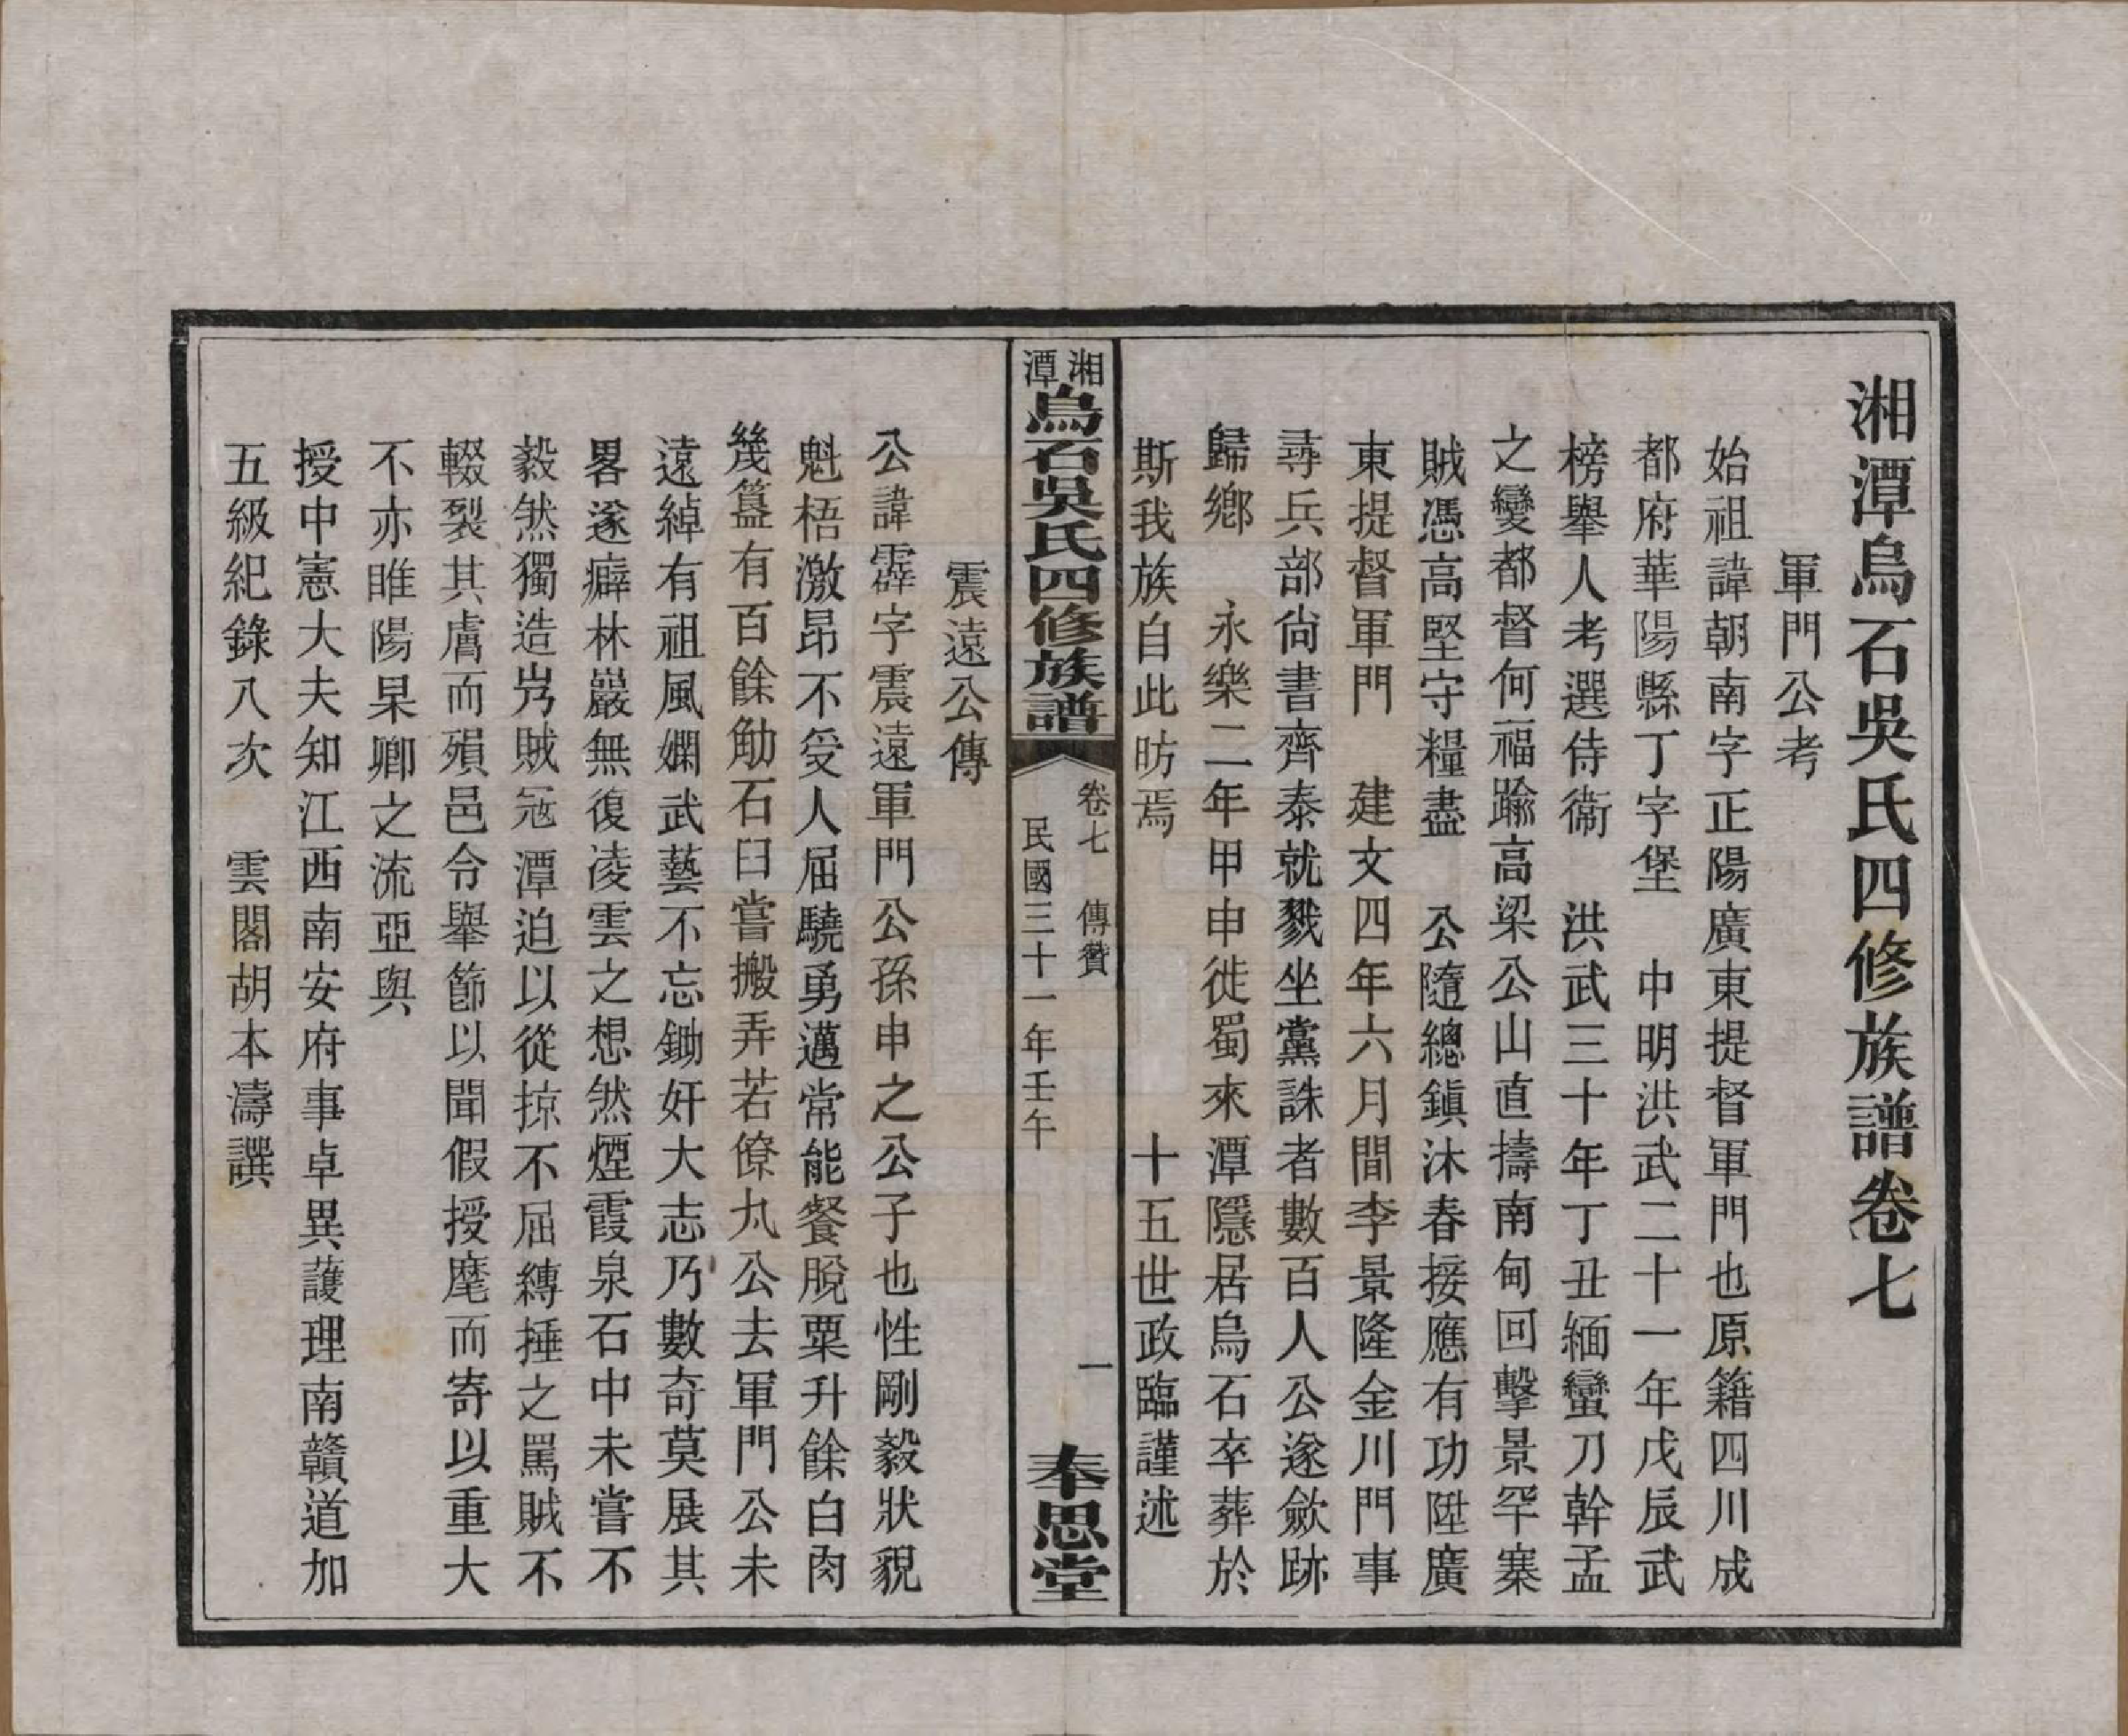 湘潭烏石吳氏四修族譜卷七
軍門公考
始祖諱朝南字正陽廣東提督軍門也原籍四川成
都府華陽縣丁字堡　中明洪武二十一年戊辰武
榜舉人考選侍衞　洪武三十年丁丑緬蠻刀幹孟
之變都督何福踰高梁公山直擣南甸回擊景罕寨
賊憑高堅守糧盡　公隨總鎮沐春接應有功陞廣
東提督軍門　建文四年六月間李景隆金川門事
尋兵部尙書齊泰就戮坐黨誅者數百人公遂歛跡
歸鄉　永樂二年甲申徙蜀來潭隱居烏石卒葬於
斯我族自此昉焉　十五世政臨謹述
湘潭烏石吳氏四修族譜
卷七　傳贊　一
民國三十一年壬午
奉思堂
震遠公傳
公諱霹字震遠軍門公孫申之公子也性剛毅狀貌
魁梧激昂不受人屈驍勇邁常能餐脫粟升餘白肉
幾簋有百餘觔石臼嘗搬弄若僚丸公去軍門公未
遠綽有祖風嫻武藝不忘鋤奸大志乃數奇莫展其
畧遂癖林巖無復凌雲之想然煙霞泉石中未嘗不
毅然獨造岃賊冦潭迫以從掠不屈縛捶之罵賊不
輟裂其膚而殞邑令舉節以聞假授麾而寄以重大
不亦睢陽杲卿之流亞與
授中憲大夫知江西南安府事卓異護理南贛道加
五級紀錄八次　雲閣胡本濤譔